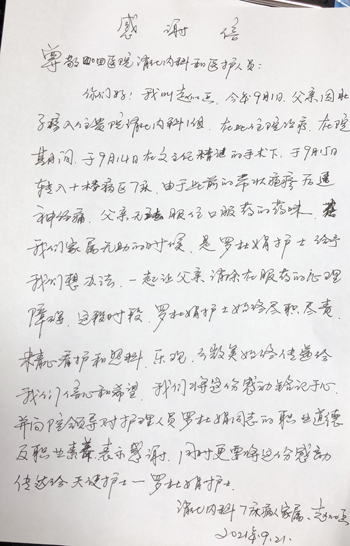 感谢信
尊敬的四医院消化内科和医护人员:
你们好!我叫赵如燕,今年9月1日,父亲因肚
子疼入住贵院消化内科1组,在此住院治疗,在院
期间,于9月14日在文主任精谌的手术下,于9月15日
转入十楼病区7床,由于此前的带状疱疹后遗
神经痛,父亲无法服任口服药的药味,
我们家属无助的时候,是罗杜娟护士给予
我们想办法,一起让父亲消除在服药的心理
障碍,这段时段,罗杜娟护士始终尽职尽责,
来看护和照料,乐观、勇敢美好给传递给
我们信心和希望,我们将这份感动铭记于心,
并向院领导对护理人员罗杜娟同志的职业道德
及职业素养表示感谢,同时更要将这份感动
传达给天使护士—罗杜娟护士.
消化内科7床病人家属、赵
2021年9.21.